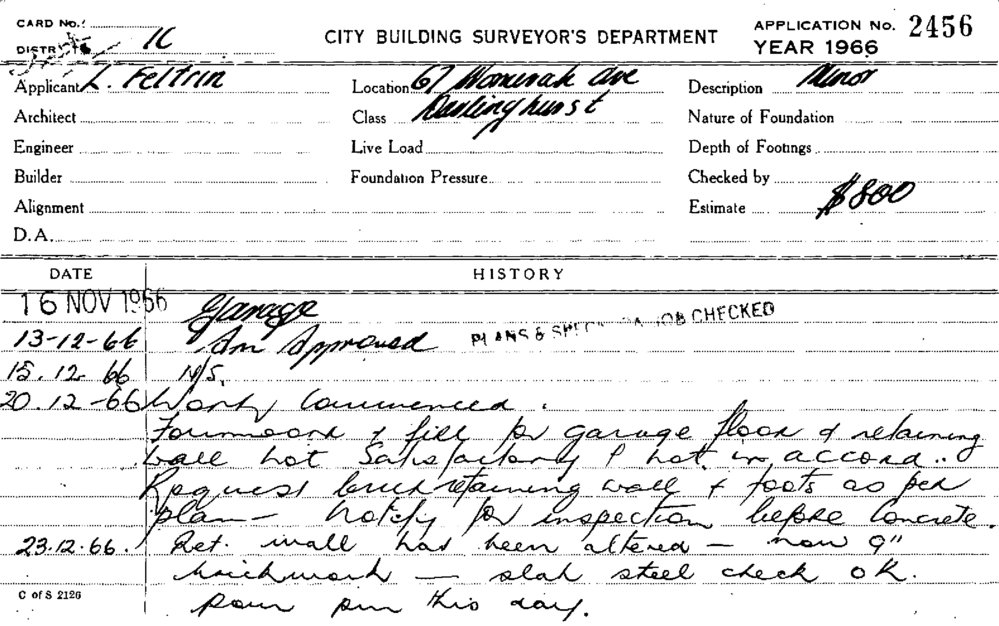 CARD No.
DISTR 1C
CITY BUILDING SURVEYOR'S DEPARTMENT
APPLICATION No. 2456
YEAR 1966
Applicant L. Feltrin
Location 67 Womerah Ave
Description Minor
Architect
Class Darlinghurst
Nature of Foundation
Engineer
Live Load
Depth of Footings
Builder
Foundation Pressure
Checked by
Alignment
Estimate $800
D.A.
DATE
HISTORY
16 NOV 1966 Garage
PLANS & JOB CHECKED
13-12-66 Approved
15.12.66 N/S.
20.12-66 Work Commenced.
Formwork & fill for garage floor & retaining
wall not satisfactory & not in accord..
Request brick retaining wall & foots as per
plan - Notify for inspection before Concrete.
23.12.66. Ret. wall has been altered - now 9"
brickwork - slab steel check OK.
pour pm this day.
C of S 2126